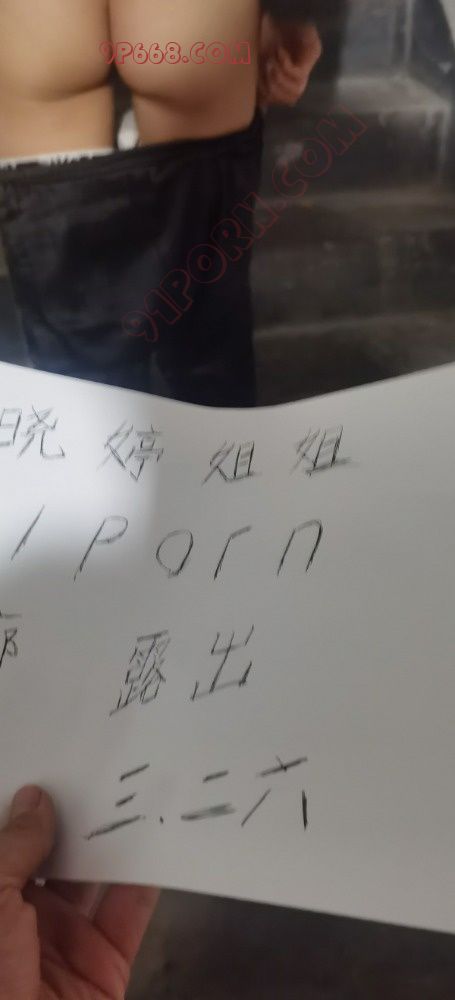 9P668.COM
91PORN.COM
晓婷姐姐
1 Porn
露出
三.二六